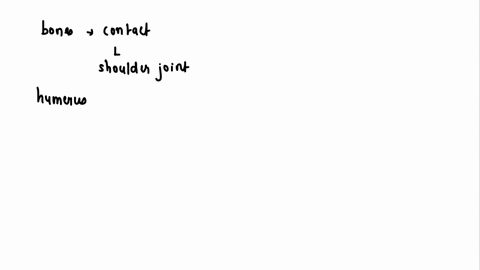 bones → contact
L
shoulder joint
humerus